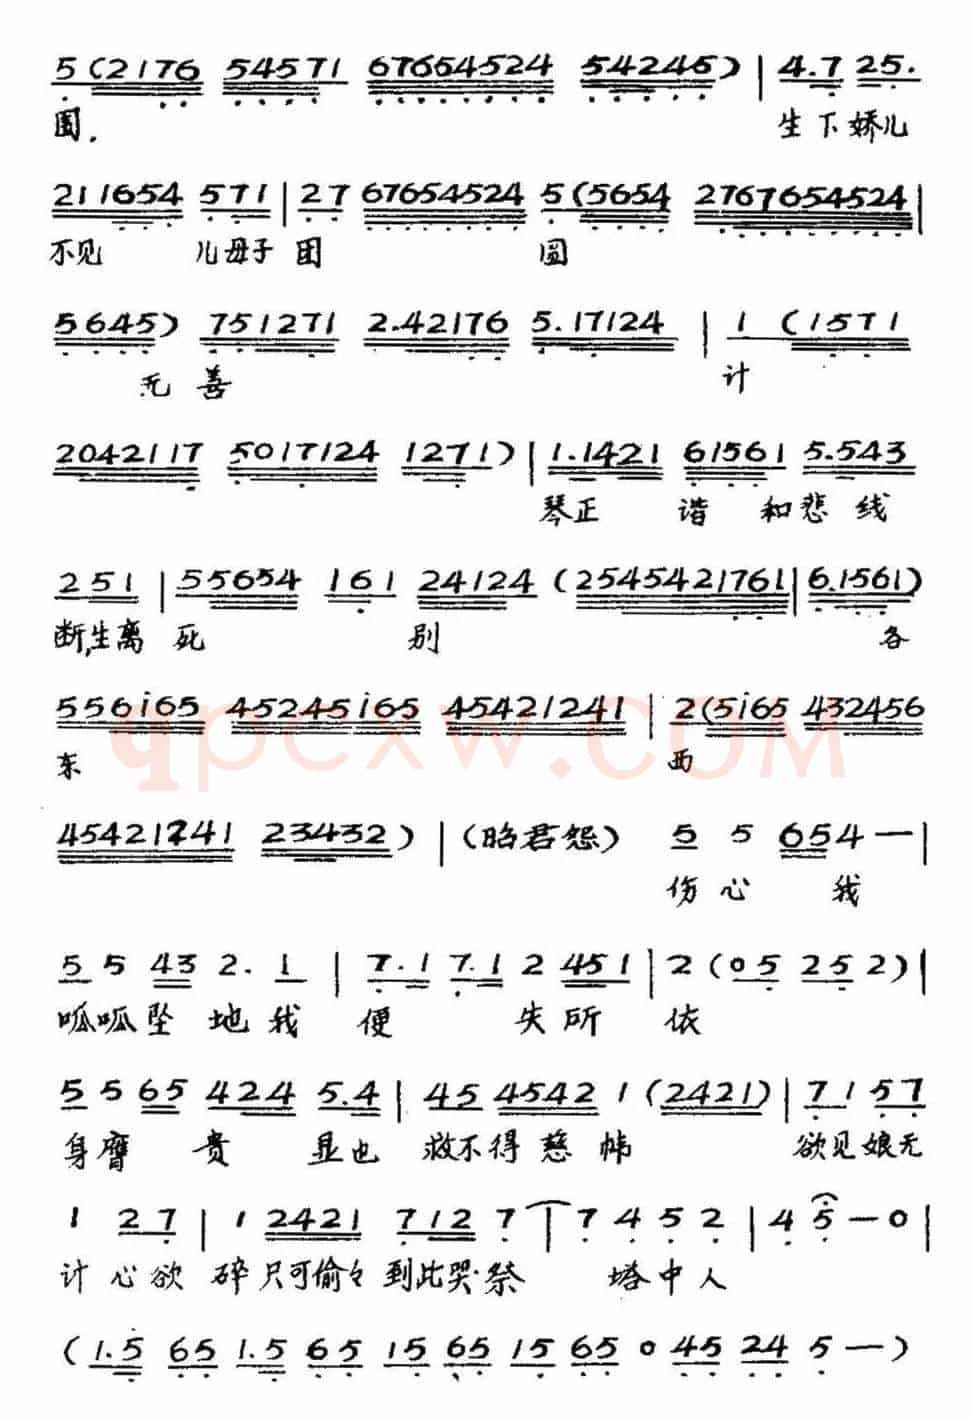 5(2176 54571 67654524 54245)|4.7 25.
圆. 生下娇儿
211654 571|27 67654524 5(5654 2767654524|
不见 儿母子团 圆
5645) 751271 2.42176 5.17124 | 1 (1571
无善 计
2042117 5017124 1271)|1.1421 61561 5.543
琴正 谐 和悲线
251|55654 161 24124 (2545421761|6.1561)
断,生离死 别 各
556i65 45245i65 45421241|2(5i65 432456
东 西
45421241 23432)|(昭君怨) 5 5 654 —|
伤心 我
5 5 43 2. 1 | 7.1 7.1 2 451|2(05 252)|
呱呱坠 地我 便 失所 依
5 5 65 424 5.4|45 4542 1(2421)|7157
身膺 贵 显也 救不得慈帏 欲见娘无
1 27|1 2421 712 7 7 4 5 2|4 5—0|
计心欲 碎只可偷々到此哭.祭 塔中人
(1.5 65 1.5 65 15 65 15 65 0 45 24 5—)
qpcxw.com